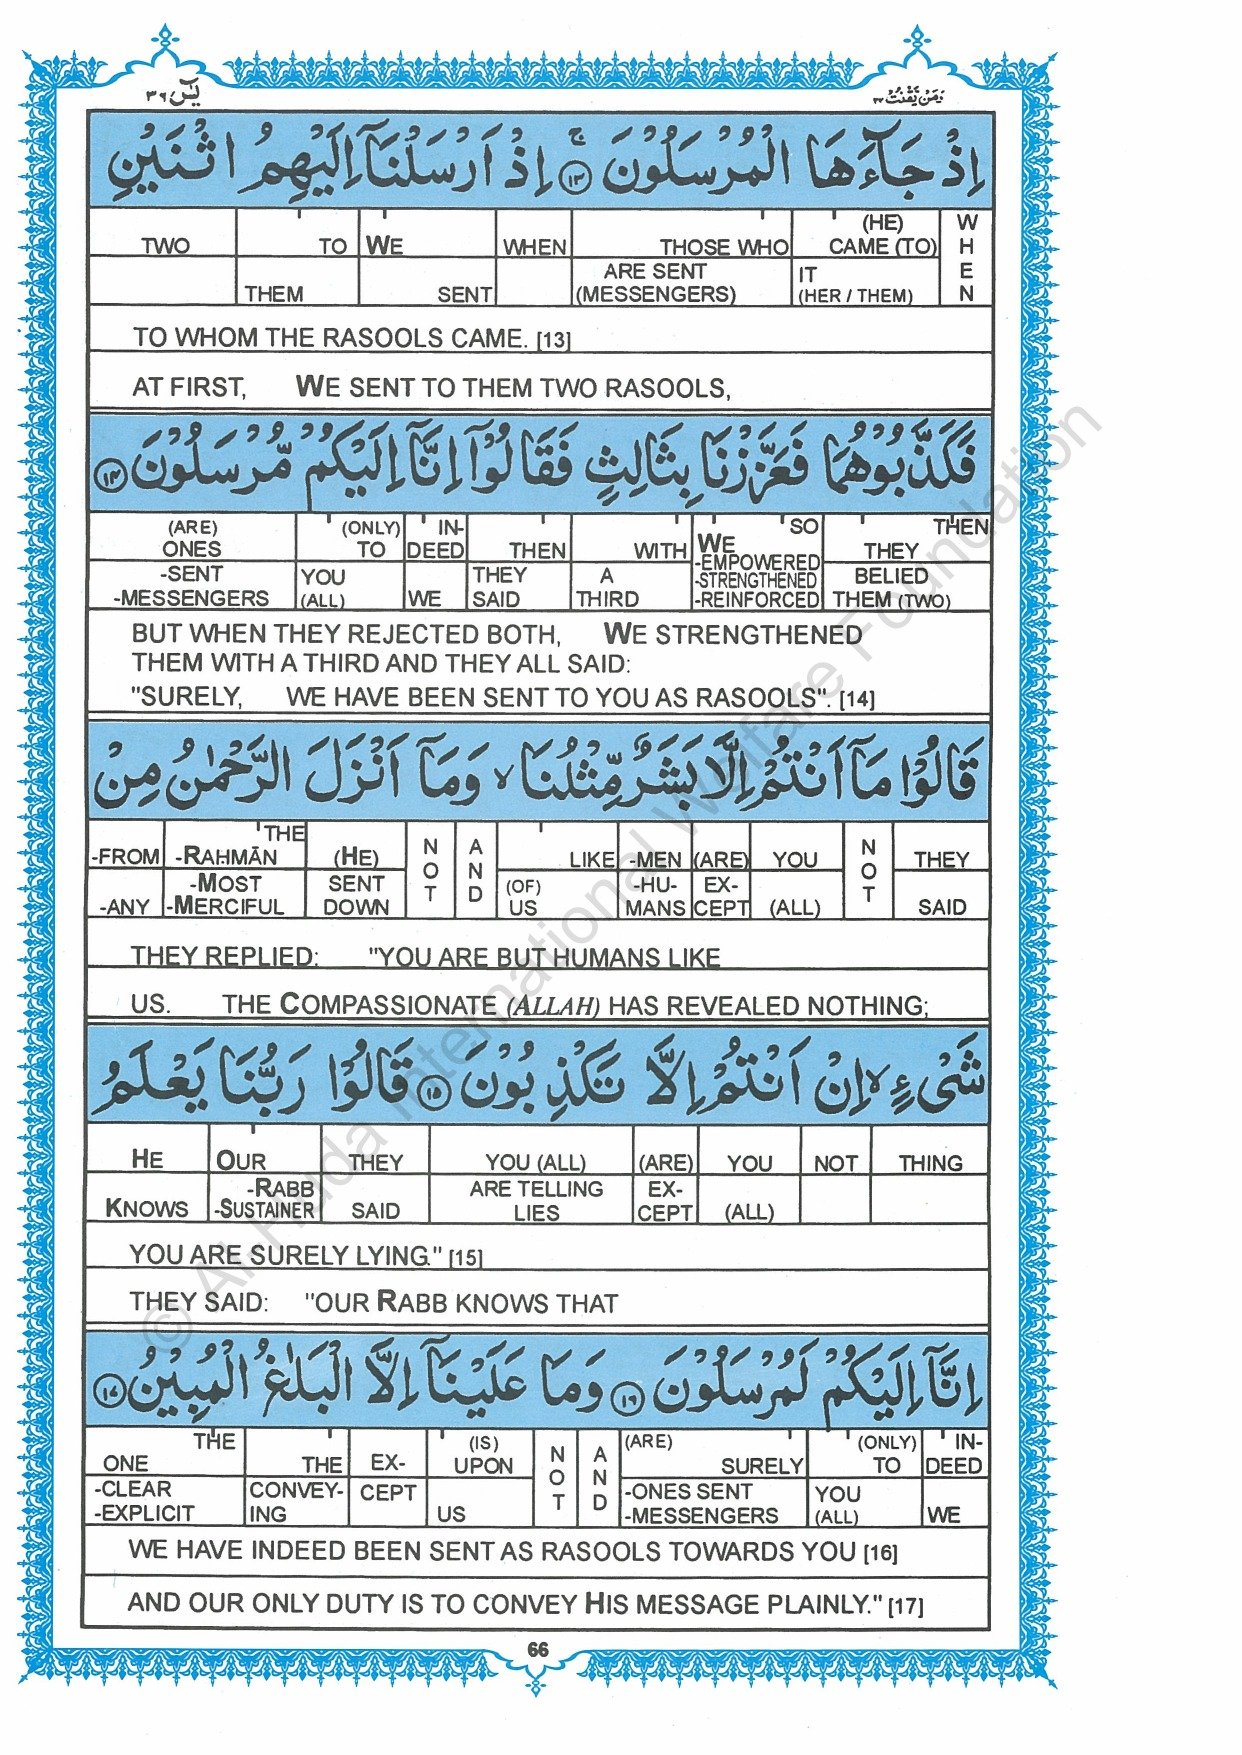 يٰسٓ ٣٦
وَمَنْ يَّقْنُتْ ٢٢
اِذْ جَآءَهَا الْمُرْسَلُوْنَ ۚ ١٣ اِذْ اَرْسَلْنَآ اِلَيْهِمُ اثْنَيْنِ
TWO TO WE WHEN THOSE WHO (HE) CAME (TO) WHEN
THEM SENT ARE SENT (MESSENGERS) IT (HER / THEM)
TO WHOM THE RASOOLS CAME. [13]
AT FIRST, WE SENT TO THEM TWO RASOOLS,
فَكَذَّبُوْهُمَا فَعَزَّزْنَا بِثَالِثٍ فَقَالُوْٓا اِنَّآ اِلَيْكُمْ مُّرْسَلُوْنَ ١٤
(ARE) ONES (ONLY) TO IN-DEED THEN WITH SO WE THEN THEY
-SENT -MESSENGERS YOU (ALL) WE THEY SAID A THIRD -EMPOWERED -STRENGTHENED -REINFORCED BELIED THEM (TWO)
BUT WHEN THEY REJECTED BOTH, WE STRENGTHENED
THEM WITH A THIRD AND THEY ALL SAID:
"SURELY, WE HAVE BEEN SENT TO YOU AS RASOOLS". [14]
قَالُوْا مَآ اَنْتُمْ اِلَّا بَشَرٌ مِّثْلُنَا ۙ وَمَآ اَنْزَلَ الرَّحْمٰنُ مِنْ
-FROM THE -RAHMĀN (HE) NOT AND LIKE -MEN (ARE) YOU NOT THEY
-ANY -MOST -MERCIFUL SENT DOWN (OF) US -HU-MANS EX-CEPT (ALL) SAID
THEY REPLIED: "YOU ARE BUT HUMANS LIKE
US. THE COMPASSIONATE (ALLAH) HAS REVEALED NOTHING;
شَيْءٍ ۙ اِنْ اَنْتُمْ اِلَّا تَكْذِبُوْنَ ١٥ قَالُوْا رَبُّنَا يَعْلَمُ
HE OUR THEY YOU (ALL) (ARE) YOU NOT THING
KNOWS -RABB -SUSTAINER SAID ARE TELLING LIES EX-CEPT (ALL)
YOU ARE SURELY LYING." [15]
THEY SAID: "OUR RABB KNOWS THAT
اِنَّآ اِلَيْكُمْ لَمُرْسَلُوْنَ ١٦ وَمَا عَلَيْنَآ اِلَّا الْبَلٰغُ الْمُبِيْنُ ١٧
THE ONE THE EX-CEPT (IS) UPON NOT AND (ARE) SURELY (ONLY) TO IN-DEED
-CLEAR -EXPLICIT CONVEY-ING US -ONES SENT -MESSENGERS YOU (ALL) WE
WE HAVE INDEED BEEN SENT AS RASOOLS TOWARDS YOU [16]
AND OUR ONLY DUTY IS TO CONVEY HIS MESSAGE PLAINLY." [17]
66
© Al-Huda International Welfare Foundation